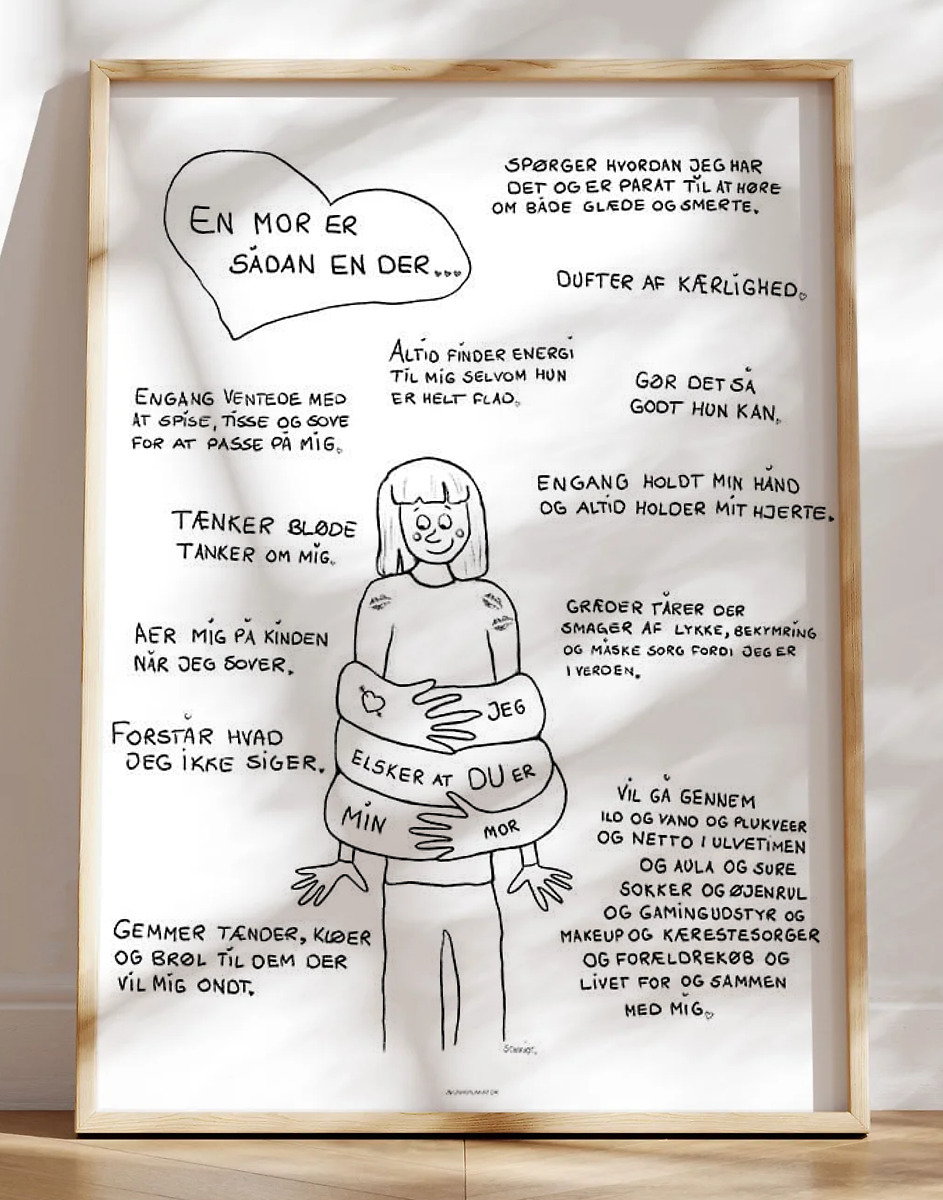 EN MOR ER
SÅDAN EN DER...
SPØRGER HVORDAN JEG HAR
DET OG ER PARAT TIL AT HØRE
OM BÅDE GLÆDE OG SMERTE.
DUFTER AF KÆRLIGHED.
ALTID FINDER ENERGI
TIL MIG SELVOM HUN
ER HELT FLAD.
GØR DET SÅ
GODT HUN KAN.
ENGANG VENTEDE MED
AT SPISE, TISSE OG SOVE
FOR AT PASSE PÅ MIG.
ENGANG HOLDT MIN HÅND
OG ALTID HOLDER MIT HJERTE.
TÆNKER BLØDE
TANKER OM MIG.
GRÆDER TÅRER DER
SMAGER AF LYKKE, BEKYMRING
OG MÅSKE SORG FORDI JEG ER
I VERDEN.
AER MIG PÅ KINDEN
NÅR JEG SOVER.
FORSTÅR HVAD
JEG IKKE SIGER.
JEG
ELSKER AT DU ER
MIN MOR
VIL GÅ GENNEM
ILD OG VAND OG PLUKVEER
OG NETTO I ULVETIMEN
OG AULA OG SURE
SOKKER OG ØJENRUL
OG GAMINGUDSTYR OG
MAKEUP OG KÆRESTESORGER
OG FORÆLDREKØB OG
LIVET FOR OG SAMMEN
MED MIG.
GEMMER TÆNDER, KLØER
OG BRØL TIL DEM DER
VIL MIG ONDT.